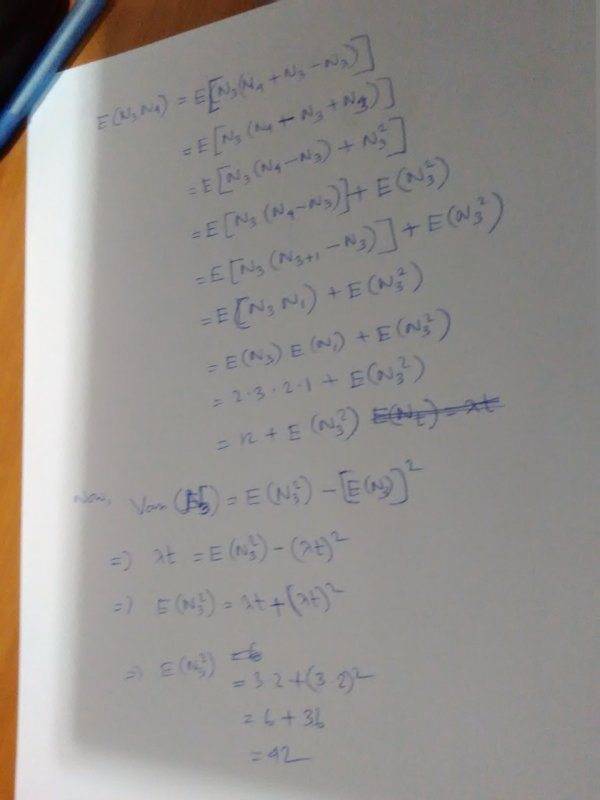 E(N₃N₄) = E[N₃(N₄ + N₃ - N₃)]
= E[N₃(N₄ - N₃ + N₃)]
= E[N₃(N₄ - N₃) + N₃²]
= E[N₃(N₄ - N₃)] + E(N₃²)
= E[N₃(N₃₊₁ - N₃)] + E(N₃²)
= E[N₃ N₁) + E(N₃²)
= E(N₃) E(N₁) + E(N₃²)
= 2·3·2·1 + E(N₃²)
= 12 + E(N₃²) E(Nₜ) = λt
Now, Var(N₃) = E(N₃²) - [E(N₃)]²
=> λt = E(N₃²) - (λt)²
=> E(N₃²) = λt + (λt)²
=> E(N₃²) = 6
= 3·2 + (3·2)²
= 6 + 36
= 42